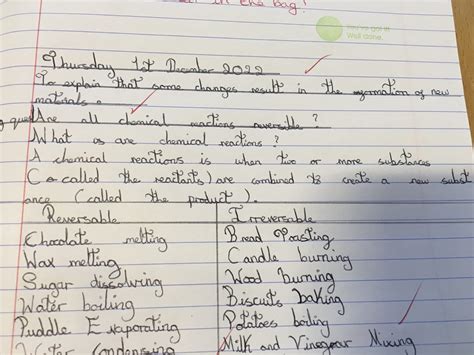 in the bag!
You've got it!
Well done.
Thursday 1st December 2022
To explain that some changes result in the formation of new
materials.
Are all chemical reactions reversible?
What are chemical reactions?
A chemical reactions is when two or more substances
(called the reactants) are combined to create a new subst
ance (called the product).
Reversable Irreversable
Chocolate melting Bread Toasting
Wax melting Candle burning
Sugar dissolving Wood burning
Water boiling Biscuits baking
Puddle Evaporating Potatoes boiling
Water Condensing Milk and Vinegar Mixing